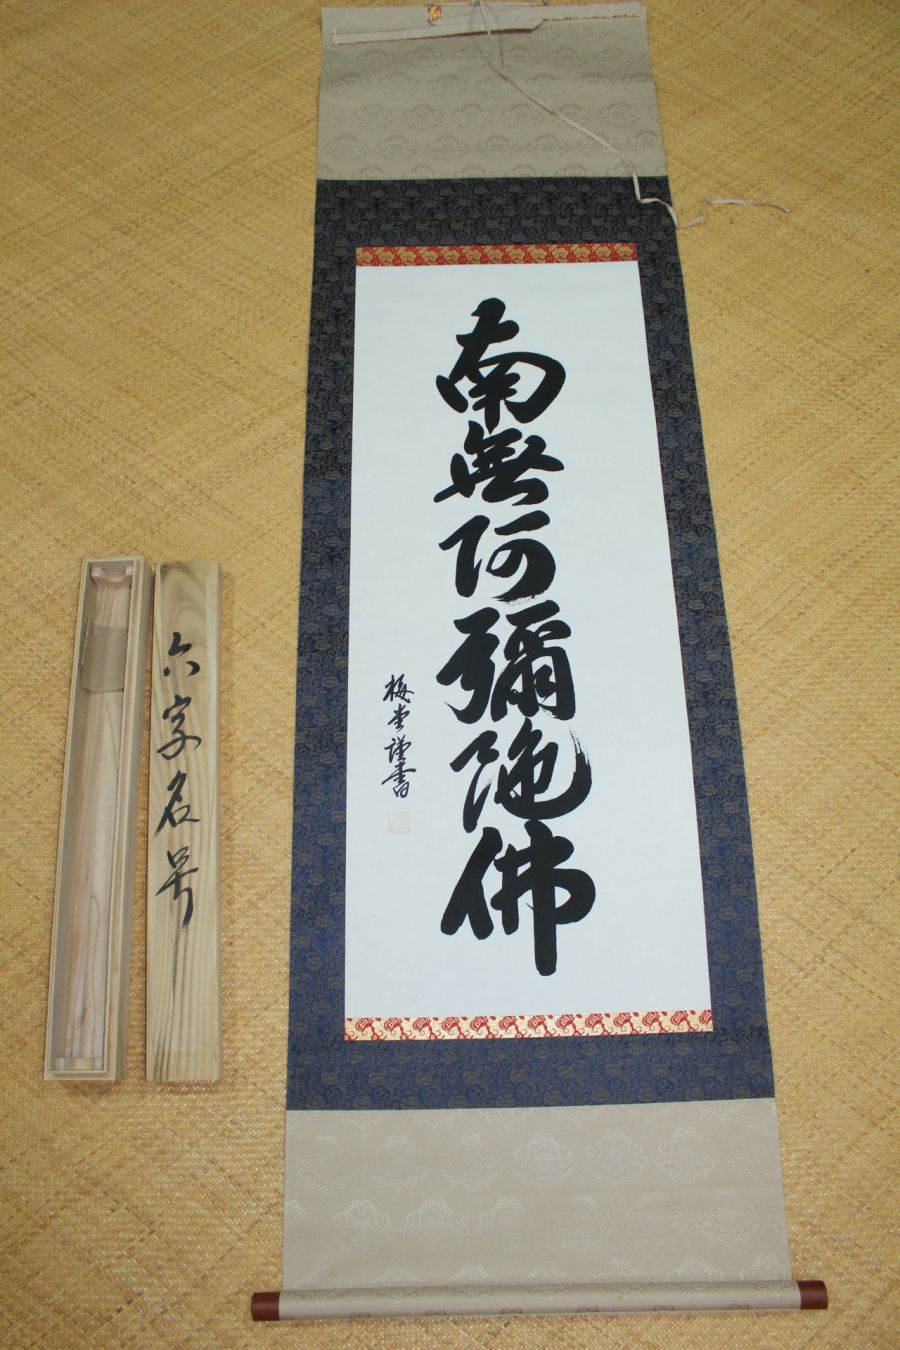 南無阿彌陀佛
梅堂謹書
六字名号